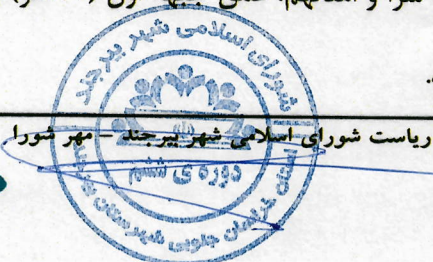 شورای اسلامی شهر بیرجند
ریاست شورای اسلامی شهر بیرجند – مهر شورا
دوره ی ششم
استان خراسان جنوبی شهرستان بیرجند